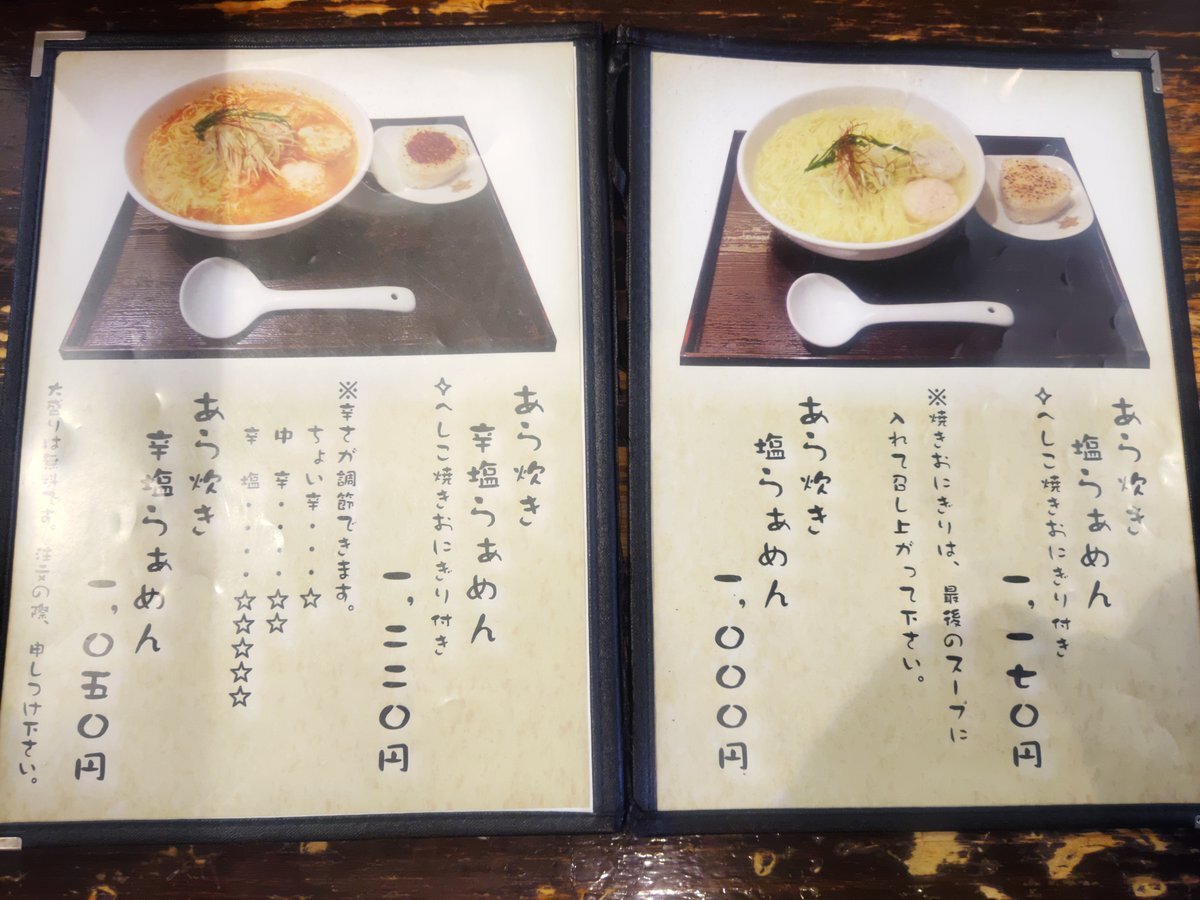 あら炊き
塩らぁめん
✧へしこ焼きおにぎり付き
一,一七〇円
※焼きおにぎりは、最後のスープに
入れて召し上がって下さい。
あら炊き
塩らぁめん
一,〇〇〇円
あら炊き
辛塩らぁめん
✧へしこ焼きおにぎり付き
一,二二〇円
※辛さが調節できます。
ちょい辛・・・☆
中 辛・・・・☆☆
辛 塩・・・・☆☆☆☆☆
あら炊き
辛塩らぁめん
一,〇五〇円
大盛りは無料です。 注文の際、申しつけ下さい。